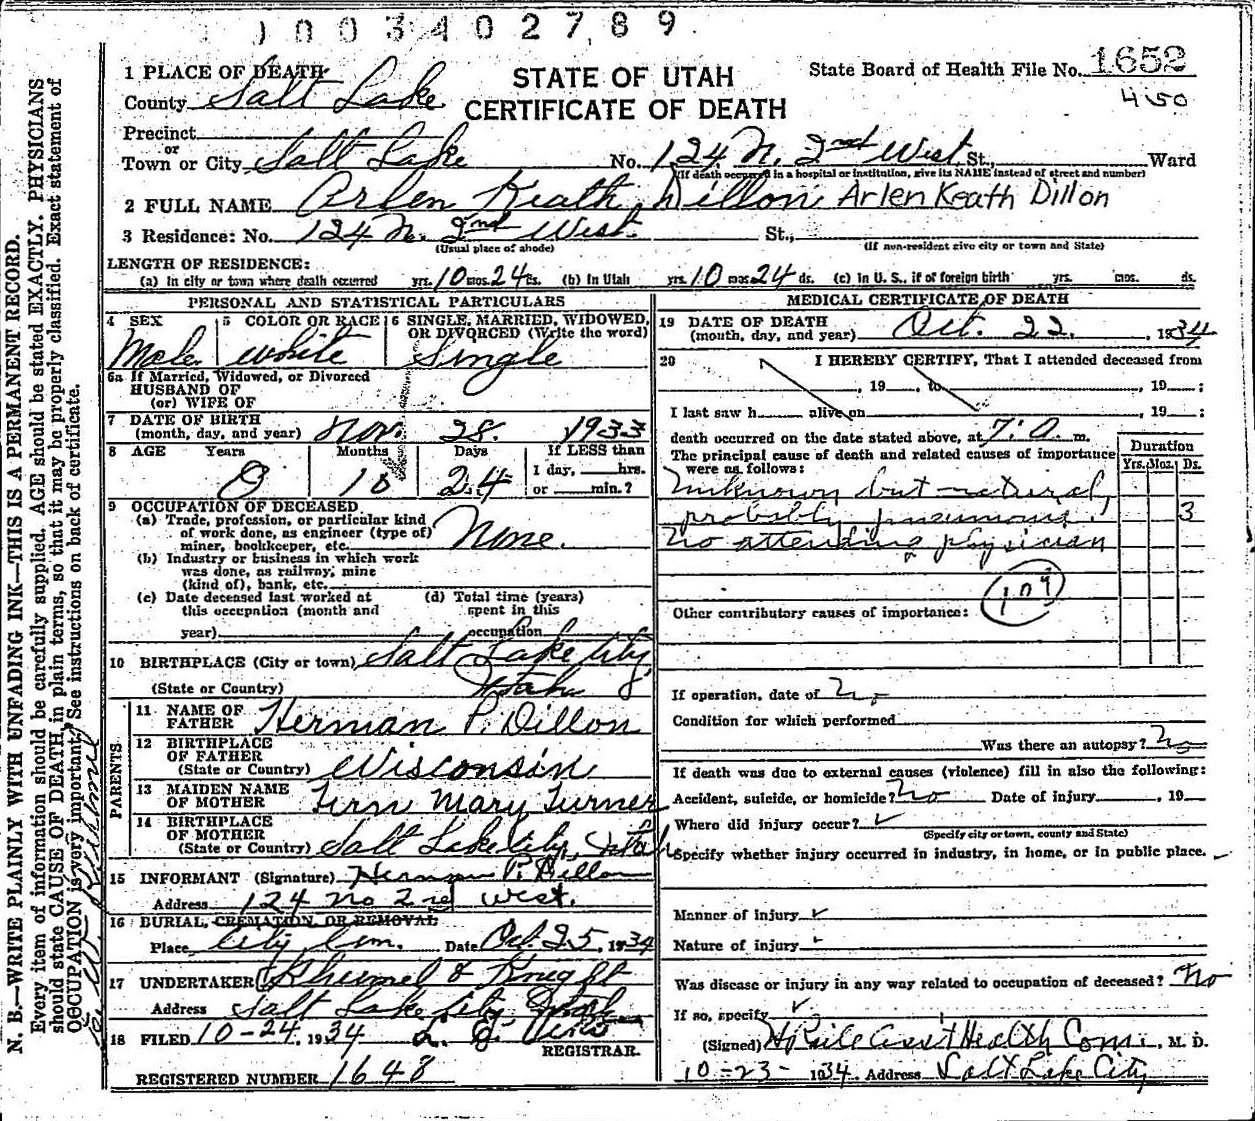 1003402789
1 PLACE OF DEATH
STATE OF UTAH
CERTIFICATE OF DEATH
State Board of Health File No. 1652
450
County Salt Lake
Precinct
or
Town or City Salt Lake No. 124 N. 2nd West St., Ward
(If death occurred in a hospital or institution, give its NAME instead of street and number)
2 FULL NAME Arlen Keath Dillon Arlen Keath Dillon
3 Residence: No. 124 N. 2nd West. St.,
(Usual place of abode) (If non-resident give city or town and State)
LENGTH OF RESIDENCE:
(a) In city or town where death occurred yrs. 10 mos. 24 ds. (b) In Utah yrs. 10 mos. 24 ds. (c) In U. S., if of foreign birth yrs. mos. ds.
PERSONAL AND STATISTICAL PARTICULARS
4 SEX Male
5 COLOR OR RACE white
6 SINGLE, MARRIED, WIDOWED, OR DIVORCED (Write the word) Single
6a If Married, Widowed, or Divorced
HUSBAND OF
(or) WIFE OF
7 DATE OF BIRTH
(month, day, and year) Nov. 28. 1933
8 AGE Years Months Days If LESS than
1 day, hrs.
0 10 24 or min.?
9 OCCUPATION OF DECEASED
(a) Trade, profession, or particular kind
of work done, as engineer (type of)
miner, bookkeeper, etc. None.
(b) Industry or business in which work
was done, as railway, mine
(kind of), bank, etc.
(c) Date deceased last worked at
this occupation (month and
year)
(d) Total time (years)
spent in this
occupation
10 BIRTHPLACE (City or town) Salt Lake City
(State or Country) Utah
PARENTS
11 NAME OF
FATHER Herman P. Dillon
12 BIRTHPLACE
OF FATHER
(State or Country) Wisconsin
13 MAIDEN NAME
OF MOTHER Fern Mary Turner
14 BIRTHPLACE
OF MOTHER
(State or Country) Salt Lake City, Utah
15 INFORMANT (Signature) Herman P. Dillon
Address 124 No 2nd west.
16 BURIAL, CREMATION, OR REMOVAL
Place City Cem. Date Oct. 25, 1934
17 UNDERTAKER & Knight
Address Salt Lake City Utah
18 FILED 10-24, 1934
REGISTRAR.
REGISTERED NUMBER 1648
MEDICAL CERTIFICATE OF DEATH
19 DATE OF DEATH
(month, day, and year) Oct. 22. 1934
20 I HEREBY CERTIFY, That I attended deceased from
, 19 , to , 19 ;
I last saw h alive on , 19 ;
death occurred on the date stated above, at 7:0 m.
The principal cause of death and related causes of importance
were as follows:
Duration
Yrs. Mos. Ds.
Unknown but natural,
probably pneumonia. 3
No attending physician
109
Other contributory causes of importance:
If operation, date of No
Condition for which performed
Was there an autopsy? No
If death was due to external causes (violence) fill in also the following:
Accident, suicide, or homicide? No Date of injury , 19
Where did injury occur?
(Specify city or town, county and State)
Specify whether injury occurred in industry, in home, or in public place.
Manner of injury
Nature of injury
Was disease or injury in any way related to occupation of deceased? No
If so, specify
(Signed) Health Com. , M. D.
10-23-1934 Address Salt Lake City
N. B.—WRITE PLAINLY WITH UNFADING INK—THIS IS A PERMANENT RECORD.
Every item of information should be carefully supplied. AGE should be stated EXACTLY. PHYSICIANS
should state CAUSE OF DEATH in plain terms, so that it may be properly classified. Exact statement of
OCCUPATION is very important. See instructions on back of certificate.